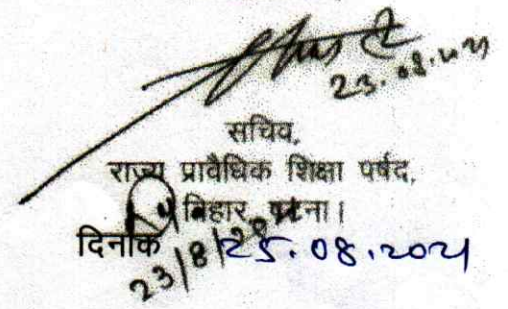 23.08.2021
सचिव,
राज्य प्रावैधिक शिक्षा पर्षद,
बिहार, पटना।
दिनांक 25.08.2021
23/8/2021